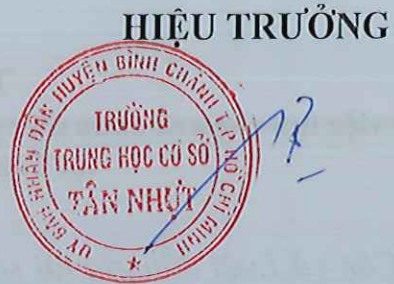 HIỆU TRƯỞNG
ỦY BAN NHÂN DÂN HUYỆN BÌNH CHÁNH T.P HỒ CHÍ MINH
TRƯỜNG
TRUNG HỌC CƠ SỞ
TÂN NHỰT